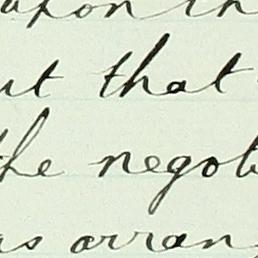 upon in
ut that
the negot
as arran